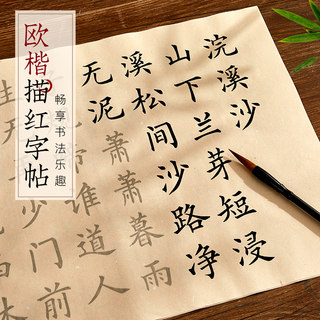 欧楷描红字帖
畅享书法乐趣
浣溪沙
山下兰芽短浸
溪松间沙路净
无泥萧萧暮雨
谁道人
少门前